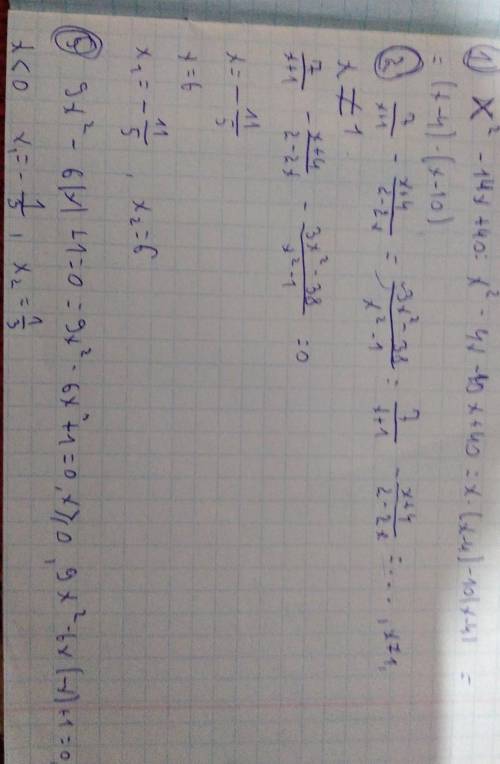 1) x² - 14x + 40 = x² - 4x - 10x + 40 = x · (x-4) - 10(x-4) =
= (x-4) · (x-10)
2) 7/x+1 - x+4/2-2x = 3x²-38/x²-1 = 7/x+1 - x+4/2-2x = ...., x≠1,
x ≠ 1.
7/x+1 - x+4/2-2x - 3x²-38/x²-1 = 0
x = -11/5
x = 6
x₁ = -11/5, x₂ = 6
3) 9x² - 6|x| + 1 = 0 = 9x² - 6x + 1 = 0, x⩾0, 9x² - 6x(-x) + 1 = 0,
x < 0 x₁ = -1/3, x₂ = 1/3